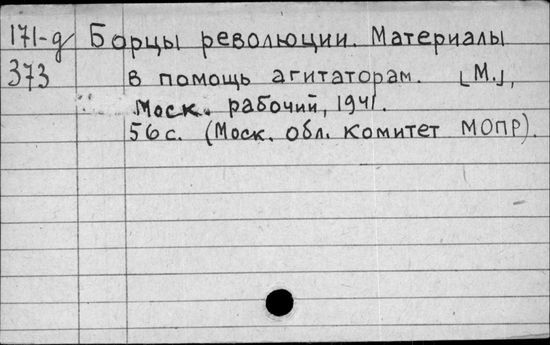 171-д Борцы революции. Материалы
373 в помощь агитаторам. [М.],
Моск. рабочий, 1941.
56 с. (Моск. обл. комитет МОПР).